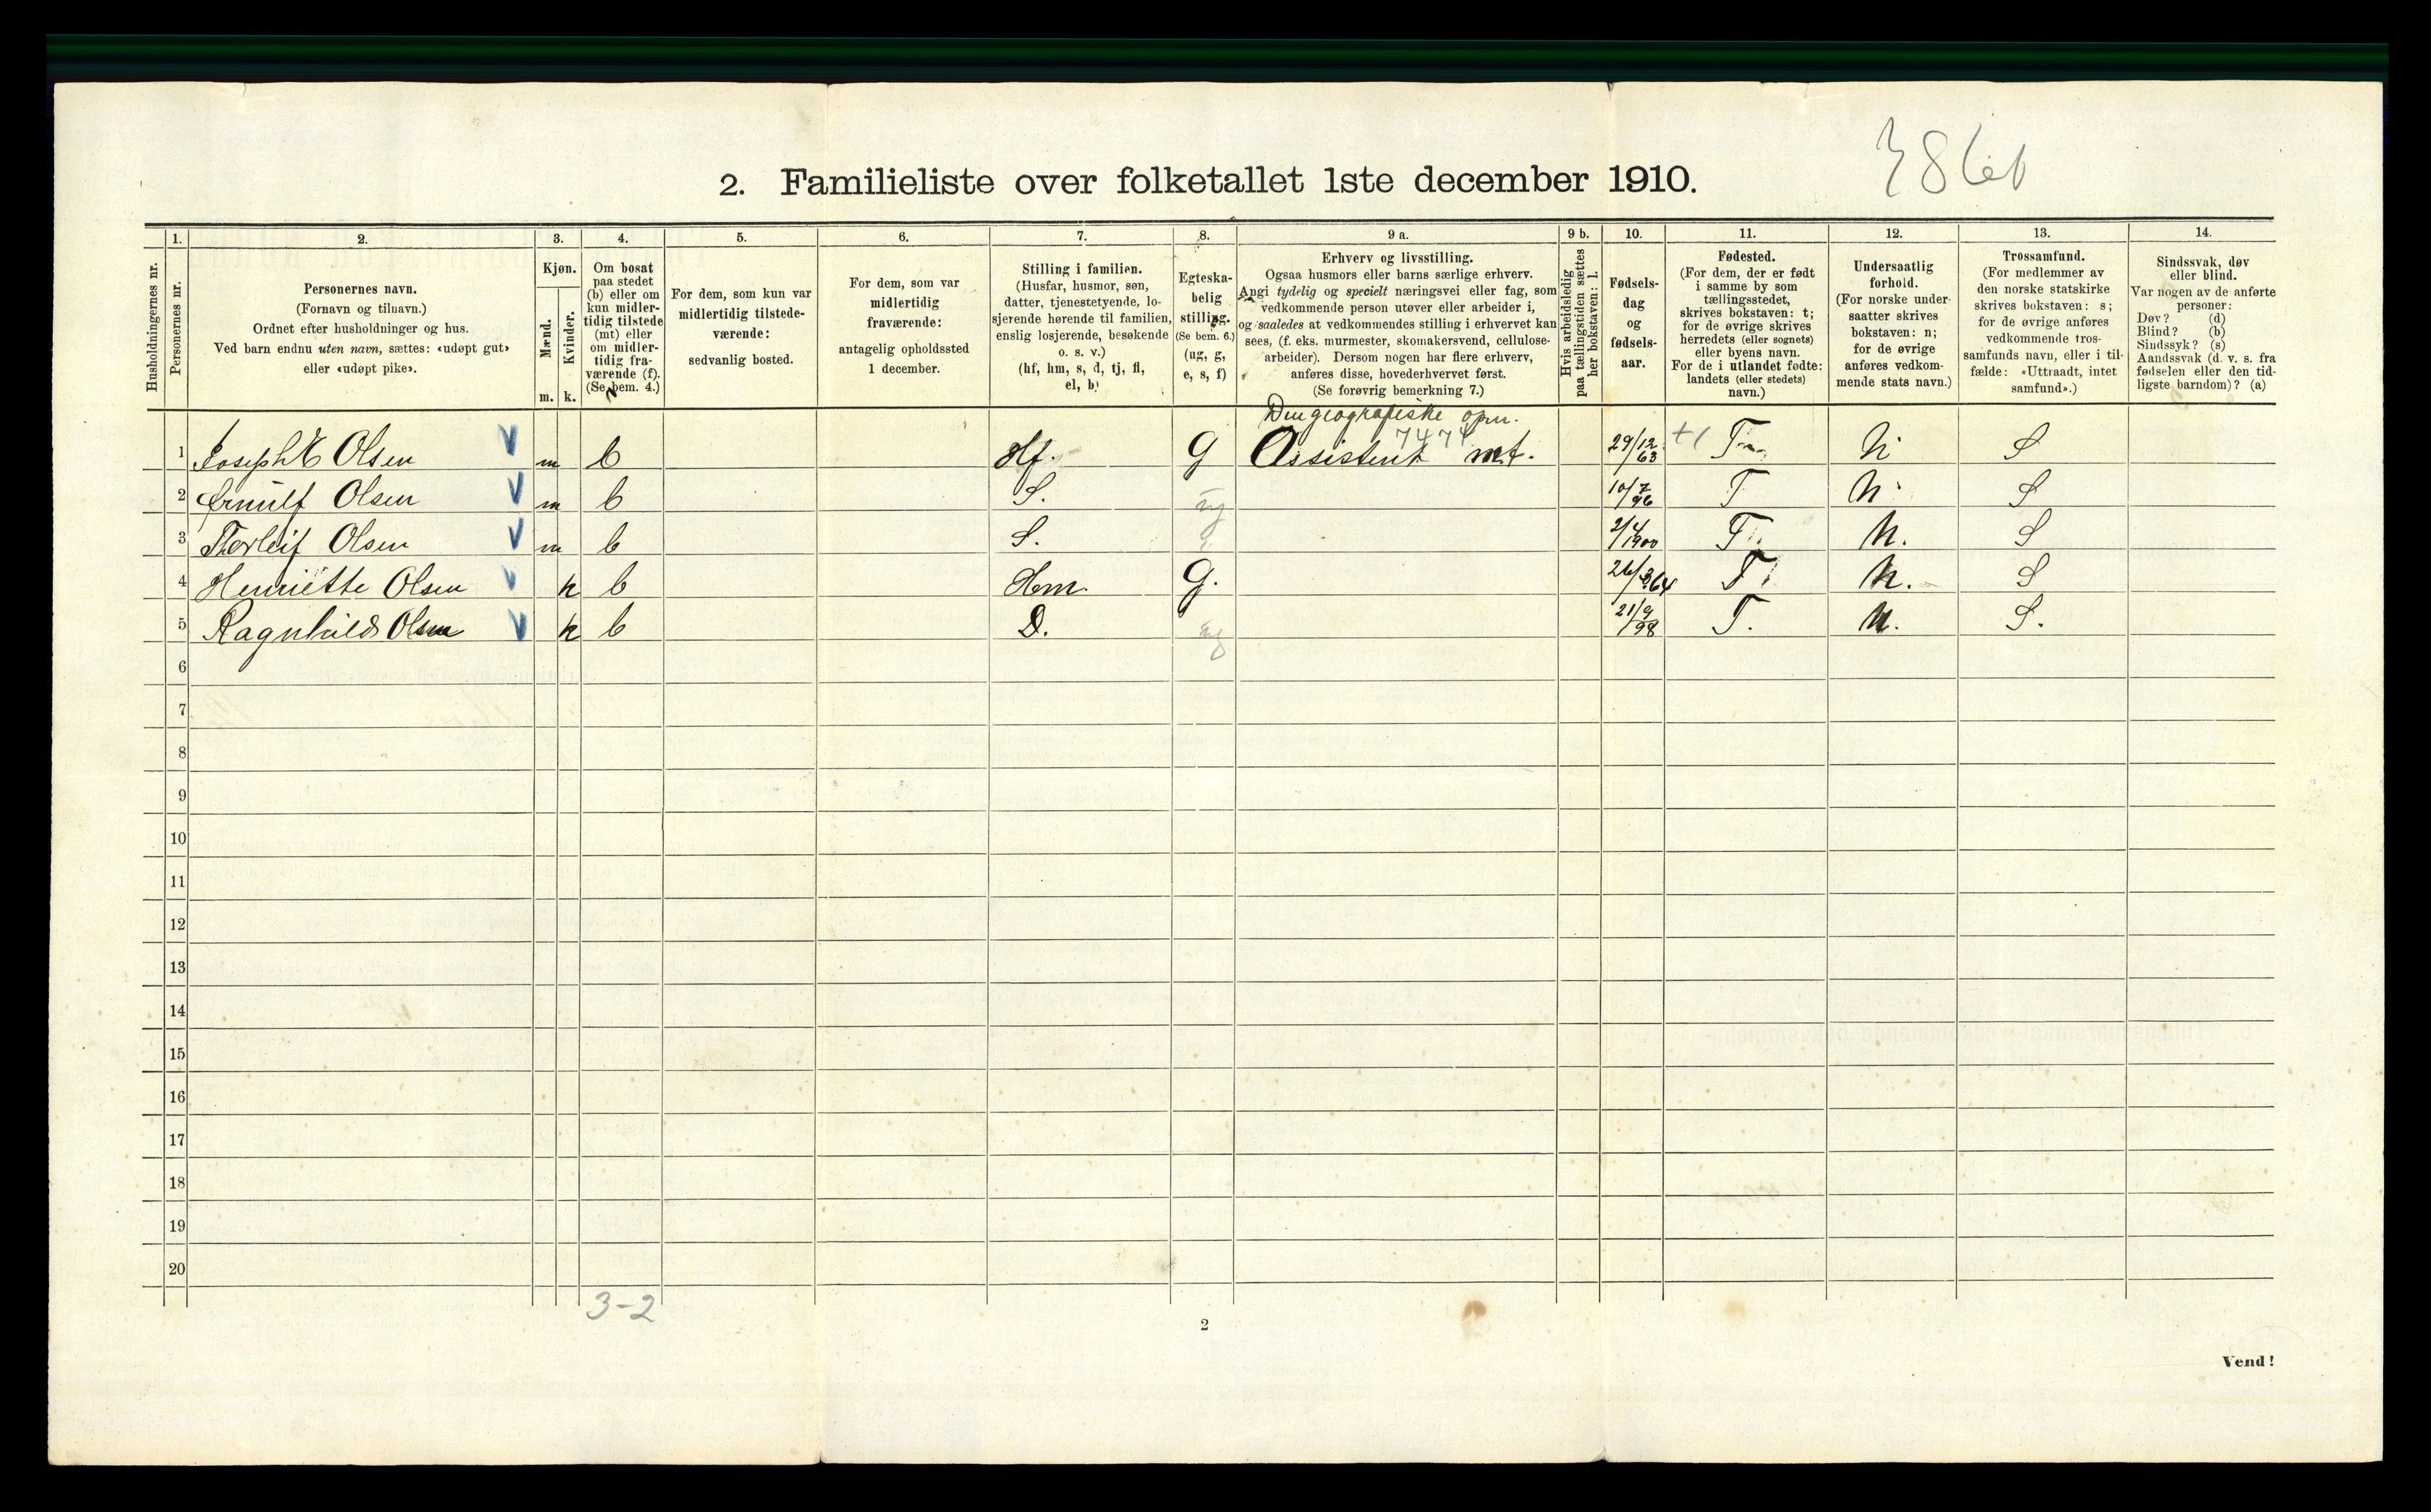 38
2. Familieliste over folketallet 1ste december 1910.
Husholdningernes nr.
1. Personernes nr.
2.
Personernes navn.
(Fornavn og tilnavn.)
Ordnet efter husholdninger og hus.
Ved barn endnu uten navn, sættes: «udøpt gut»
eller «udøpt pike».
3.
Kjøn.
Mænd. Kvinder.
m. k.
4.
Om bosat
paa stedet
(b) eller om
kun midler-
tidig tilstede
(mt) eller
om midler-
tidig fra-
værende (f).
(Se bem. 4.)
5.
For dem, som kun var
midlertidig tilstede-
værende:
sedvanlig bosted.
6.
For dem, som var
midlertidig
fraværende:
antagelig opholdssted
1 december.
7.
Stilling i familien.
(Husfar, husmor, søn,
datter, tjenestetyende, lo-
sjerende hørende til familien,
enslig losjerende, besøkende
o. s. v.)
(hf, hm, s, d, tj, fl,
el, b)
8.
Egteska-
belig
stilling.
(Se bem. 6.)
(ug, g,
e, s, f)
9 a.
Erhverv og livsstilling.
Ogsaa husmors eller barns særlige erhverv.
Angi tydelig og specielt næringsvei eller fag, som
vedkommende person utøver eller arbeider i,
og saaledes at vedkommendes stilling i erhvervet kan
sees, (f. eks. murmester, skomakersvend, cellulose-
arbeider). Dersom nogen har flere erhverv,
anføres disse, hovederhvervet først.
(Se forøvrig bemerkning 7.)
9 b.
Hvis arbeidsledig
paa tællingstiden sættes
her bokstaven: l.
10.
Fødsels-
dag
og
fødsels-
aar.
11.
Fødested.
(For dem, der er født
i samme by som
tællingsstedet,
skrives bokstaven: t;
for de øvrige skrives
herredets (eller sognets)
eller byens navn.
For de i utlandet fødte:
landets (eller stedets)
navn.)
12.
Undersaatlig
forhold.
(For norske under-
saatter skrives
bokstaven: n;
for de øvrige
anføres vedkom-
mende stats navn.)
13.
Trossamfund.
(For medlemmer av
den norske statskirke
skrives bokstaven: s;
for de øvrige anføres
vedkommende tros-
samfunds navn, eller i til-
fælde: «Uttraadt, intet
samfund».)
14.
Sindssvak, døv
eller blind.
Var nogen av de anførte
personer:
Døv? (d)
Blind? (b)
Sindssyk? (s)
Aandssvak (d. v. s. fra
fødselen eller den tid-
ligste barndom)? (a)
Den geografiske opm.
1 Joseph E Olsen V m b Hf. G Assistent 7474 mt. 29/12 63 +1 T. N S
2 Arnulf Olsen V m b S. ug 10/7 96 T N. S
3 Thorleif Olsen V m b S. 2/4 1900 T. N. S
4 Henriette Olsen V k b Hm. G. 26/3 64 T. N. S
5 Ragnhild Olsen V k b D. ug 21/9 98 T. N. S.
6
7
8
9
10
11
12
13
14
15
16
17
18
19
20
3-2
2
Vend!